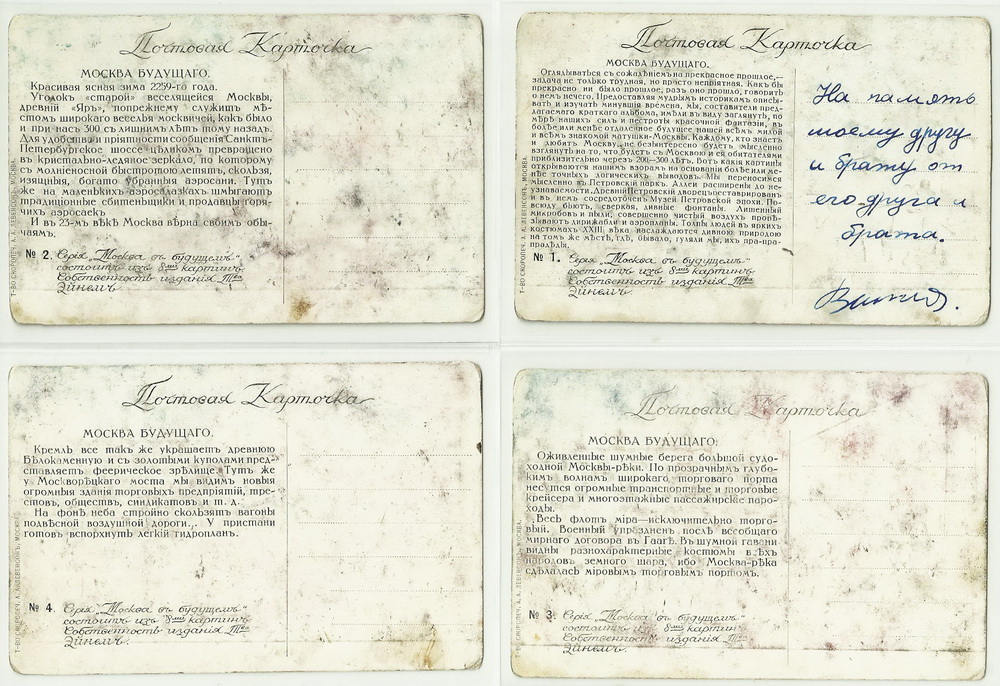 Почтовая Карточка
МОСКВА БУДУЩАГО.
Красивая ясная зима 2259-го года.
Уголокъ «старой» веселящейся Москвы,
древній «Яръ», попрежнему служитъ мѣ-
стомъ широкаго веселья москвичей, какъ было
и при насъ 300 слишкомъ лѣтъ тому назадъ.
Для удобства и пріятности сообщенія Санктъ-
Петербургское шоссе цѣликомъ превращено
въ кристально-ледяное зеркало, по которому
съ молніеносной быстротою летятъ, скользя,
изящныя, богато убранныя аэросани. Тутъ
же на маленькихъ аэросалазкахъ шмыгаютъ
традиціонные сбитенщики и продавцы горя-
чихъ аэросаекъ
И въ 23-мъ вѣкѣ Москва вѣрна своимъ обы-
чаямъ.
№ 2. Серія „Москва въ будущемъ“
состоитъ изъ 8ми картинъ.
Собственность изданія Тва
Эйнемъ.
Т-ВО СКОРОПЕЧ. А. А. ЛЕВЕНСОНЪ, МОСКВА.
Почтовая Карточка
МОСКВА БУДУЩАГО.
Оглядываться съ сожалѣніемъ на прекрасное прошлое,—
задача не только трудная, но просто непріятная. Какъ бы
прекрасно ни было прошлое, разъ оно прошло, говорить
о немъ нечего. Предоставляя мудрымъ историкамъ описы-
вать и изучать минувшія времена, мы, составители пред-
лагаемаго краткаго альбома, имѣли въ виду заглянуть, по
мѣрѣ нашихъ силъ и пестроты красочной фантазіи, въ
болѣе или менѣе отдаленное будущее нашей всѣмъ милой
и всѣмъ знакомой матушки-Москвы. Каждому, кто знаетъ
и любитъ Москву, не безынтересно будетъ мысленно
взглянуть на то, что будетъ съ Москвою и ея обитателями
приблизительно черезъ 200—300 лѣтъ. Вотъ какія картины
открываются нашимъ взорамъ на основаніи болѣе или ме-
нѣе точныхъ логическихъ выводовъ. Мы переносимся
мысленно въ Петровскій паркъ. Аллеи расширены до не-
узнаваемости. Древній Петровскій дворецъ реставрированъ
и въ немъ сосредоточенъ Музей Петровской эпохи. По-
всюду бьютъ, сверкая, дивные фонтаны. Лишенный
микробовъ и пыли, совершенно чистый воздухъ прорѣ-
зываютъ дирижабли и аэропланы. Толпы людей въ яркихъ
костюмахъ XXIII вѣка наслаждаются дивною природою
на томъ же мѣстѣ, гдѣ, бывало, гуляли мы, ихъ пра-пра-
прадѣды.
№ 1. Серія „Москва въ будущемъ“
состоитъ изъ 8ми картинъ.
Собственность изданія Тва
Эйнемъ.
Т-ВО СКОРОПЕЧ. А. А. ЛЕВЕНСОНЪ, МОСКВА.
На память
моему другу
и брату от
его друга и
брата.
Почтовая Карточка
МОСКВА БУДУЩАГО.
Кремль все такъ же украшаетъ древнюю
Бѣлокаменную и съ золотыми куполами пред-
ставляетъ феерическое зрѣлище. Тутъ же
у Москворѣцкаго моста мы видимъ новыя
огромныя зданія торговыхъ предпріятій, тре-
стовъ, обществъ, синдикатовъ и т. д.
На фонѣ неба стройно скользятъ вагоны
подвѣсной воздушной дороги. У пристани
готовъ вспорхнуть легкій гидропланъ.
№ 4. Серія „Москва въ будущемъ“
состоитъ изъ 8ми картинъ.
Собственность изданія Тва
Эйнемъ.
Т-ВО СКОРОПЕЧ. А. А. ЛЕВЕНСОНЪ, МОСКВА.
Почтовая Карточка
МОСКВА БУДУЩАГО.
Оживленные шумные берега большой судо-
ходной Москвы-рѣки. По прозрачнымъ глубо-
кимъ волнамъ широкаго торговаго порта
несутся огромные транспортные и торговые
крейсера и многоэтажные пассажирскіе паро-
ходы.
Весь флотъ міра—исключительно торго-
вый. Военный упраздненъ послѣ всеобщаго
мирнаго договора въ Гаагѣ. Въ шумной гавани
видны разнохарактерные костюмы всѣхъ
народовъ земного шара, ибо Москва-рѣка
сдѣлалась міровымъ торговымъ портомъ.
№ 3. Серія „Москва въ будущемъ“
состоитъ изъ 8ми картинъ.
Собственность изданія Тва
Эйнемъ.
Т-ВО СКОРОПЕЧ. А. А. ЛЕВЕНСОНЪ, МОСКВА.